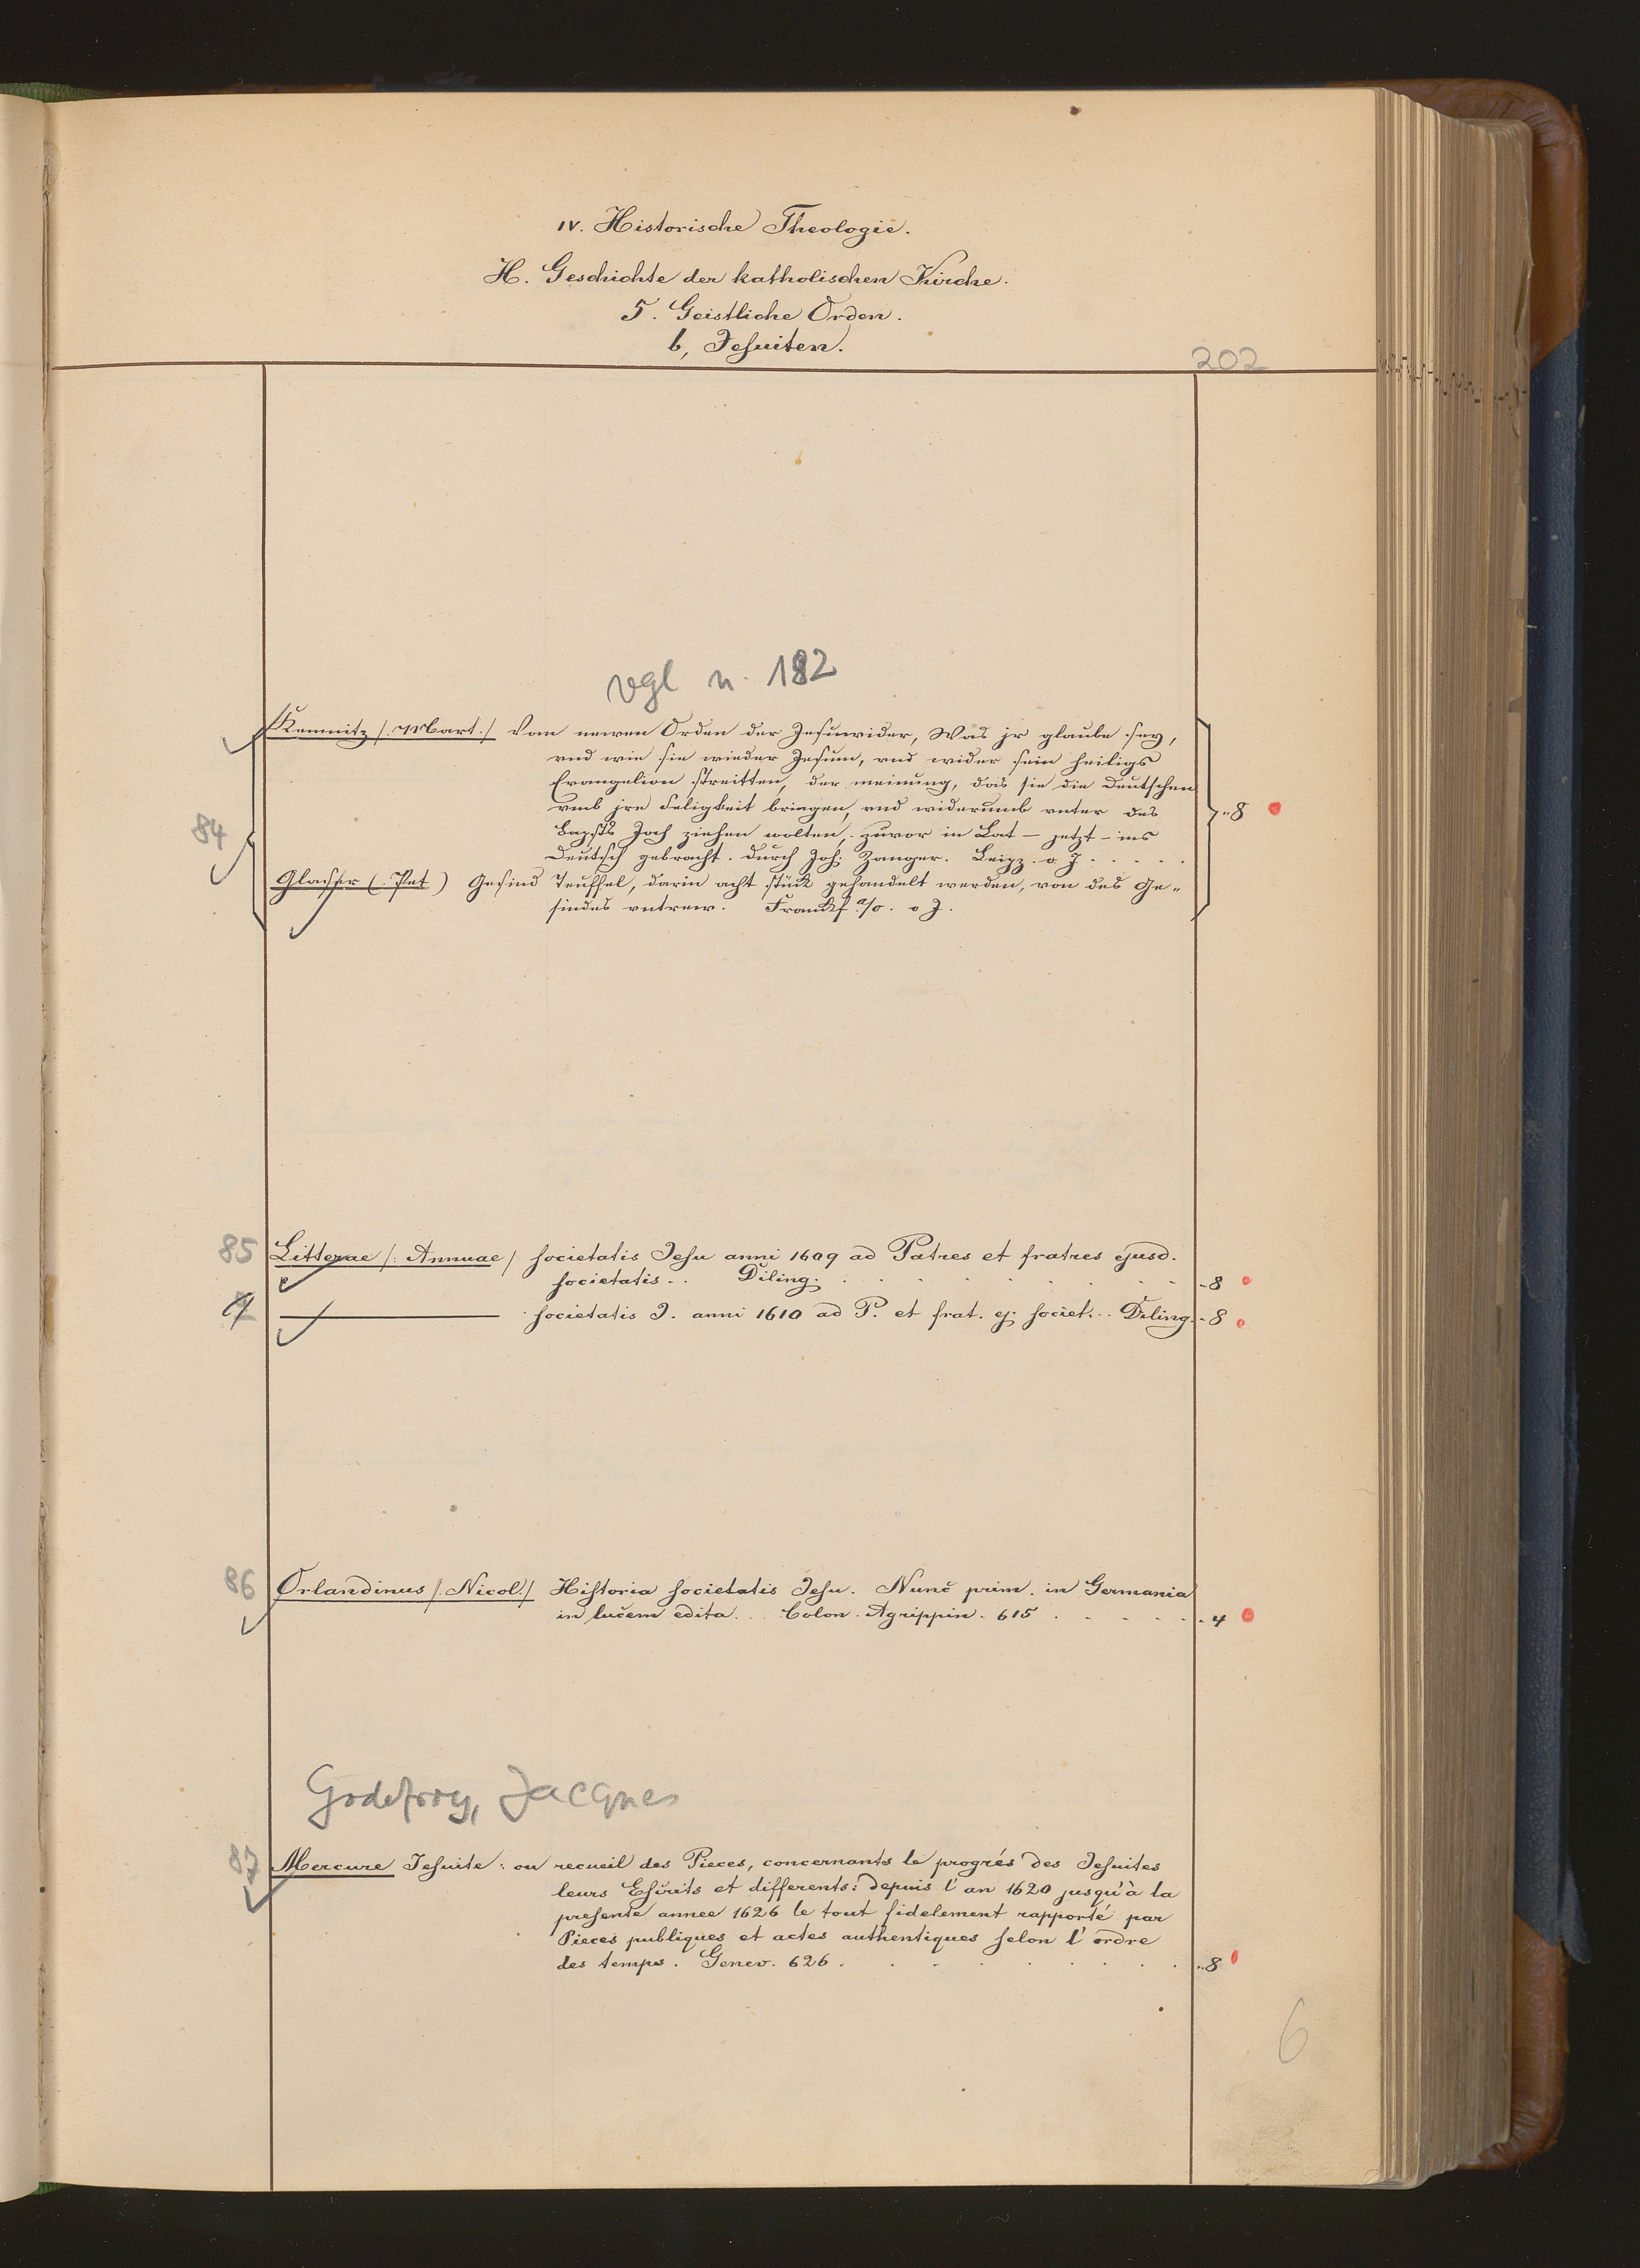 IV. Historische Theologie.
H. Geschichte der katholischen Kirche.
5. Geistliche Orden.
b, Jesuiten.
202
vgl n. 182
84 Kemnitz /: Mart. / Vom newen Orden der Jesuwider, Was jr glaube sey,
vnd wie sie wieder Jesum, vnd wider sein heiligs
Evangelion streitten, der meinung, das sie die Deutschen
vmb jre Seligkeit bringen, und widerumb vnter des
Bapsts Joch ziehen wolten, zuvor in Lat – jetzt – ins
Deutsch gebracht. durch Joh. Zanger. Leipz. o J. . . . . „8
Glasser (. Pet ) Gesind Teuffel, darin acht stück gehandelt werden, von des Ge„
sindes vntrew. Frankf. a/O. o J.
85 Litterae /: Annuae / societatis Jesu anni 1609 ad Patres et fratres ejusd.
societatis . . Diling. . . . . . . . . - 8
societatis J. anni 1610 ad P. et frat. ej. societ... Diling. - 8
86 Orlandinus /: Nicol. / Historia societatis Jesu. Nunc prim. in Germania
in lucem edita . . . Colon. Agrippin. 615 . . . . . . 4
Godefroy, Jacques
87 Mercure Jesuite: ou recueil des Pieces, concernants le progrés des Jesuites
leurs Escrits et differents: depuis l'an 1620 jusqu'à la
presente annee 1626 le tout fidelement rapporté par
Pieces publiques et actes authentiques selon l'ordre
des temps. Genev. 626 . . . . . . . . „8
6